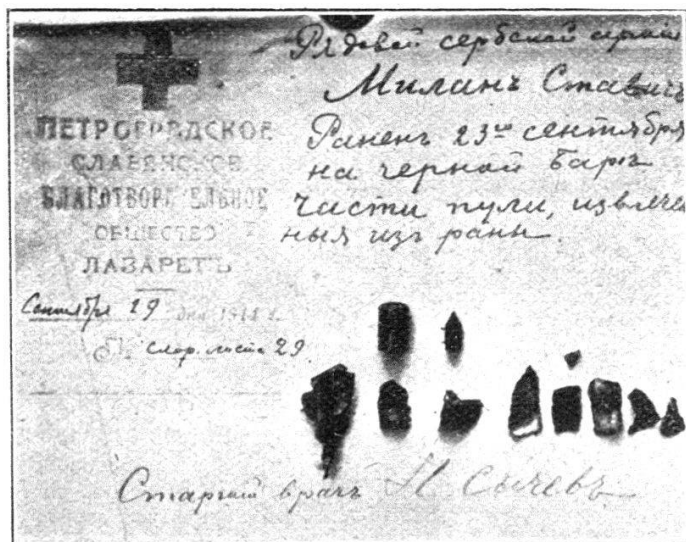 ПЕТРОГРАДСКОЕ
СЛАВЯНСКОЕ
БЛАГОТВОРИТЕЛЬНОЕ
ОБЩЕСТВО
ЛАЗАРЕТЪ
Сентября 29 дня 1914 г.
№ скор. листа 29
Рядовой сербской армiи
Миланъ Ставичъ
Раненъ 23го сентября
на черной барѣ
Части пули, извлечен
ныя изъ раны.
Старшiй врачъ Н Сычевъ